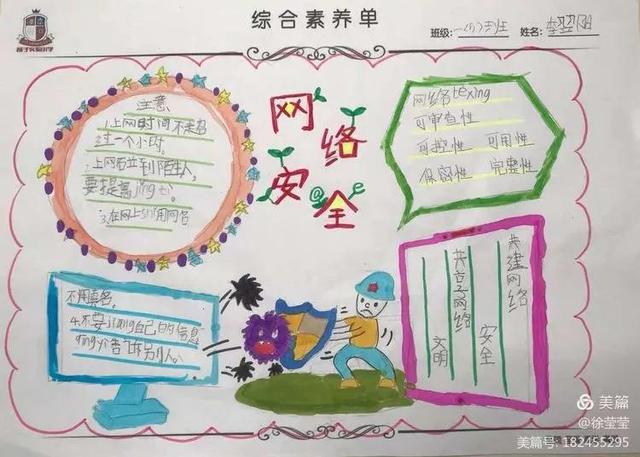 综合素养单
班级: 一(1)班 姓名:
注意
1.上网时间不要超
过一个小时。
2.上网石並到陌生人,
要提高jing ti。
3.在网上shi用网名
网络安全
网络tè xing
可审查性
可控性 可用性
保密性 完整性
不用真名。
4.不要jiang自己的信息
告诉别人。
共建网络
安全
共享网络
文明
美篇
@徐莹莹
美篇号: 182455295